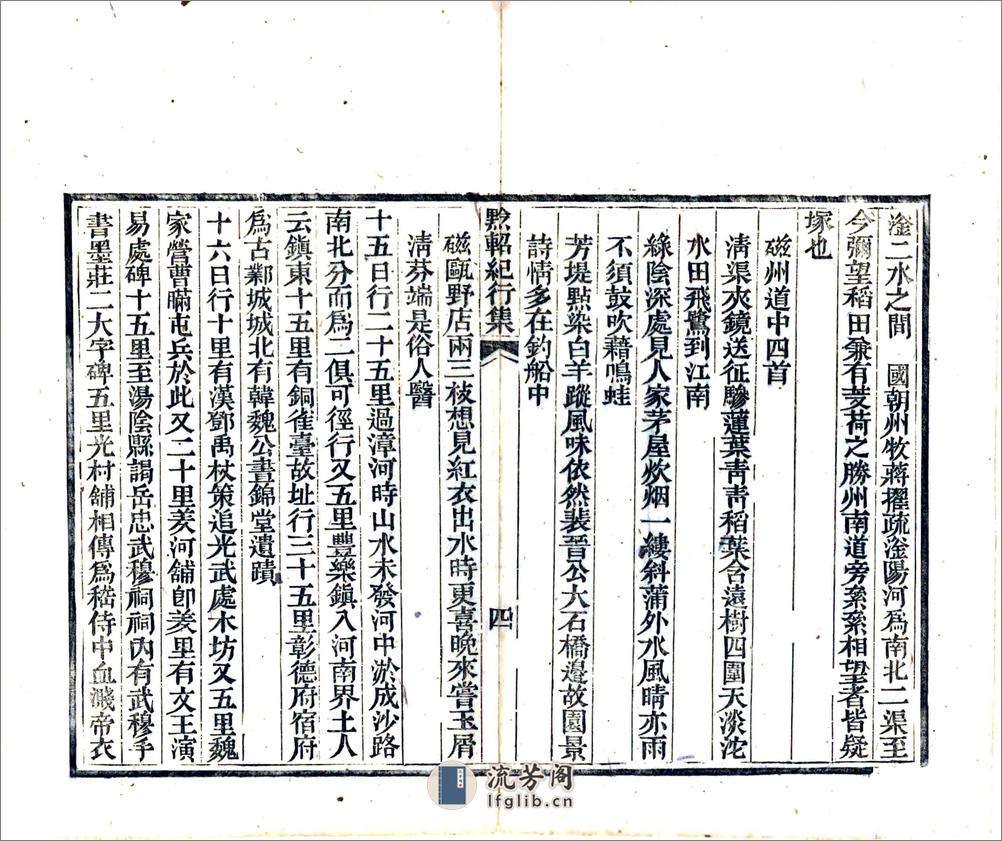 滏二水之間　國朝州牧蔣擢疏滏陽河爲南北二渠至
今彌望稻田兼有芰荷之勝州南道旁纍纍相望者皆疑
塚也
磁州道中四首
淸渠夾鏡送征驂蓮葉靑靑稻葉含遠樹四圍天淡沱
水田飛鷺到江南
綠陰深處見人家茅屋炊烟一縷斜蒲外水風晴亦雨
不須鼓吹藉鳴蛙
芳堤點染白羊蹤風味依然裴晉公大石橋邉故園景
詩情多在釣船中
黔軺紀行集
四
磁甌野店兩三枝想見紅衣出水時更喜晚來嘗玉屑
淸芬端是俗人醫
十五日行二十五里過漳河時山水未發河中淤成沙路
南北分而爲二俱可徑行又五里豐樂鎭入河南界土人
云鎭東十五里有銅雀臺故址行三十五里彰德府宿府
爲古鄴城城北有韓魏公晝錦堂遺蹟
十六日行十里有漢鄧禹杖策追光武處木坊又五里魏
家營曹瞞屯兵於此又二十里羑河舖卽羑里有文王演
易處碑十五里至湯陰縣謁岳忠武穆祠祠內有武穆手
書墨莊二大字碑五里光村舖相傳爲嵇侍中血濺帝衣
流芳阁
lfglib.cn